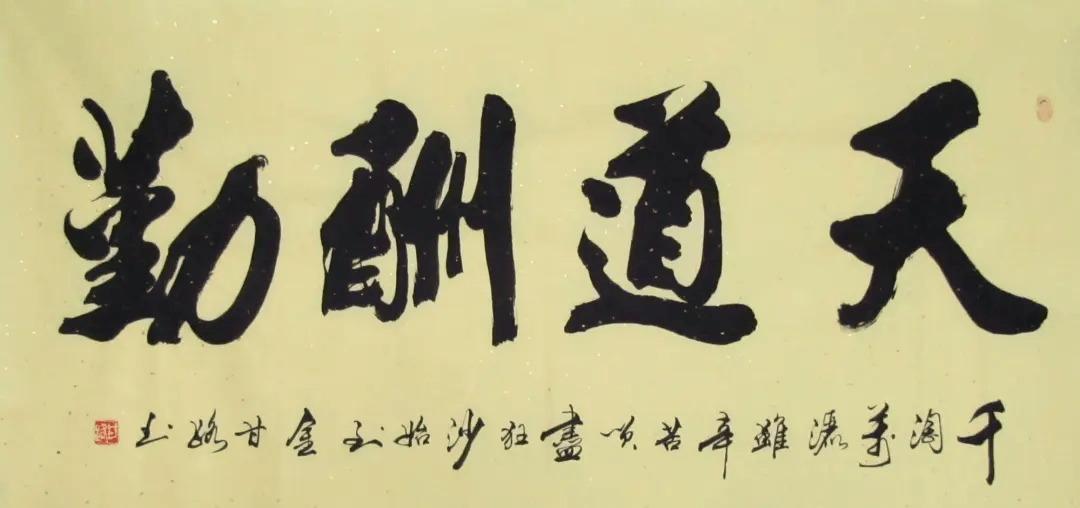 天道酬勤
千淘萬漉雖辛苦吹盡狂沙始到金甘书